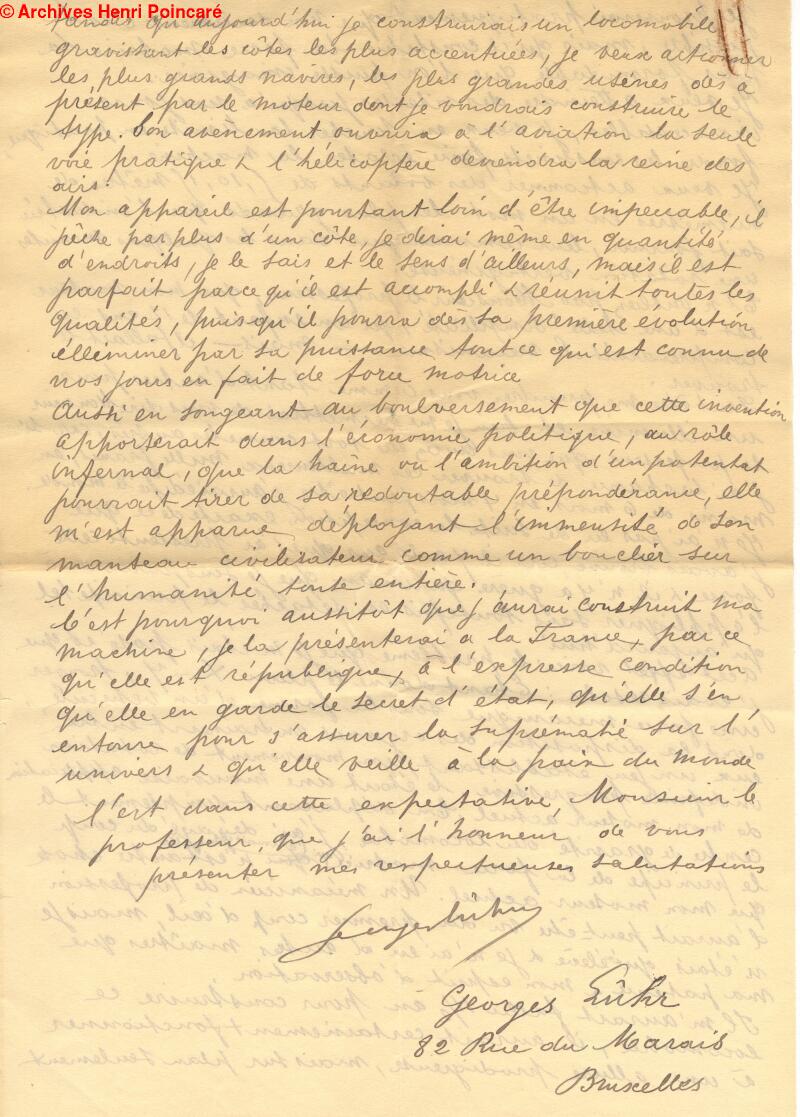 © Archives Henri Poincaré
tandis qu'aujourd'hui je construirais un locomobile
gravissant les côtes les plus accentuées, je veux actionner
les plus grands navires, les plus grandes usènes dès à
présent par le moteur dont je voudrais construire le
type. Son avènement ouvrira a l'aviation la seule
voie pratique & l'hélicoptère deviendra la reine des
airs.
Mon appareil est pourtant loin d'être impeccable, il
pêche par plus d'un côte, je dirai même en quantité
d'endroits, je le sais et le sens d'ailleurs, mais il est
parfait parce qu'il est accompli & réunit toutes les
qualités, puisqu'il pourra dès sa première évolution
élléminer par sa puissance tout ce qui est connu de
nos jours en fait de force motrice
Aussi en songeant au boulversement que cette invention
apporterait dans l'économie politique, au rôle
infernal, que la haîne ou l'ambition d'un potentat
pourrait tirer de sa redoutable prépondérance, elle
m'est apparue déployant l'immensité de son
manteau civilisateur comme un bouclier sur
l'humanité toute entière.
C'est pourquoi aussitôt que j'aurai construit ma
machine, je la présenterai a la France, par ce
qu'elle est république, à l'expresse condition
qu'elle en garde le secret d'état, qu'elle s'en
entoure pour s'assurer la suprématie sur l'
univers & qu'elle veille à la paix du monde
C'est dans cette expectative, Monsieur le
professeur, que j'ai l'honneur de vous
présenter mes respectueuses salutations
Georges Lühr
Georges Lühr
82 Rue du Marais
Bruxelles